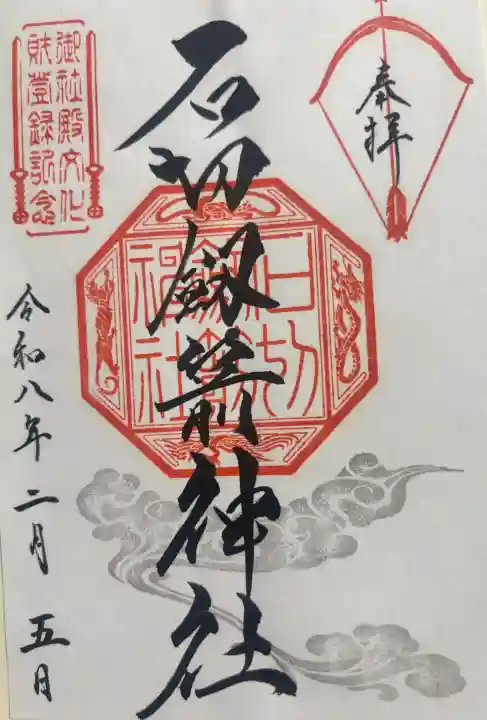 奉拝
石切劔箭神社
御社殿文化
財登録記念
令和八年二月五日